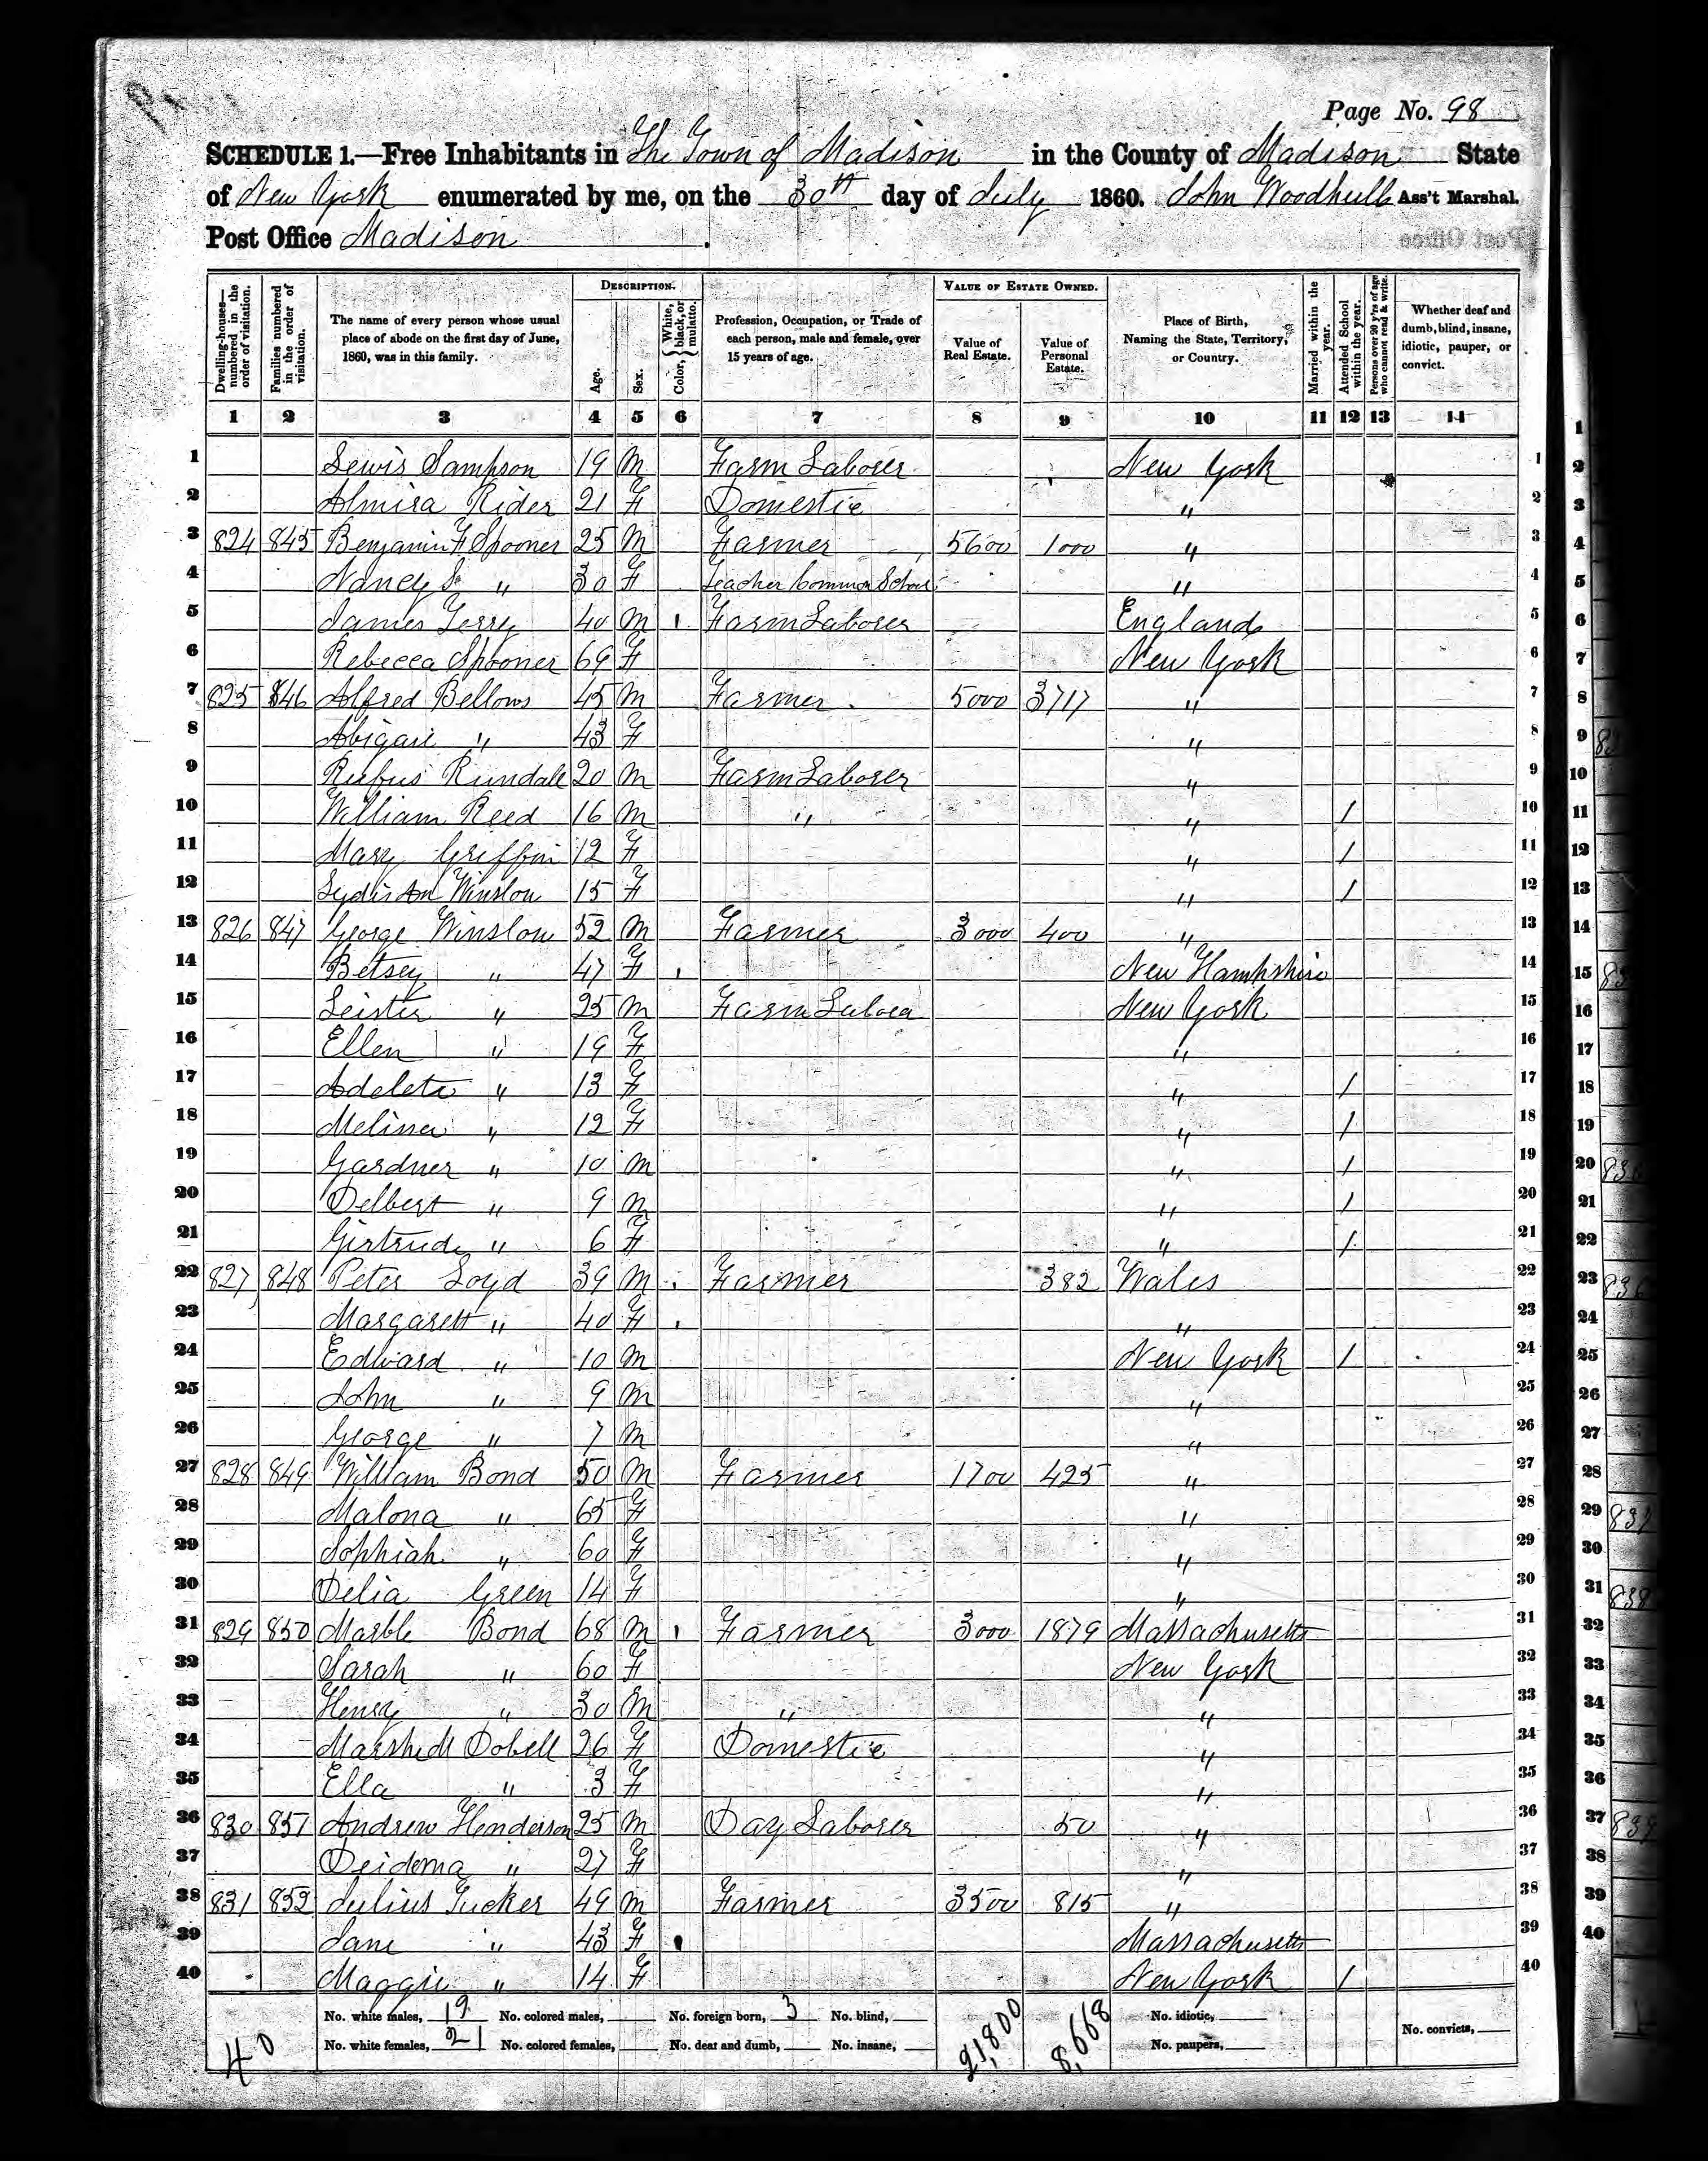 Page No. 98
SCHEDULE 1.—Free Inhabitants in The Town of Madison in the County of Madison State
of New York enumerated by me, on the 30th day of July 1860. John Woodhull Ass't Marshal.
Post Office Madison.
Dwelling-houses—numbered in the order of visitation. Families numbered in the order of visitation. The name of every person whose usual place of abode on the first day of June, 1860, was in this family. DESCRIPTION. Age. Sex. Color, White, black, or mulatto. Profession, Occupation, or Trade of each person, male and female, over 15 years of age. VALUE OF ESTATE OWNED. Value of Real Estate. Value of Personal Estate. Place of Birth, Naming the State, Territory, or Country. Married within the year. Attended School within the year. Persons over 20 y'rs of age who cannot read & write. Whether deaf and dumb, blind, insane, idiotic, pauper, or convict.
1 2 3 4 5 6 7 8 9 10 11 12 13 14
1 Lewis Sampson 19 M Farm Laborer New York 1
2 Almira Rider 21 F Domestic " 2
3 824 845 Benjamin F Spooner 25 M Farmer 5600 1000 " 3
4 Nancy S " 30 F Teacher Common School " 4
5 James Terry 40 M 1 Farm Laborer England 5
6 Rebecca Spooner 69 F New York 6
7 825 846 Alfred Bellows 45 M Farmer 5000 3717 " 7
8 Abigail " 43 F " 8
9 Rufus Rundall 20 M Farm Laborer " 9
10 William Reed 16 M " " / 10
11 Mary Griffin 12 F " / 11
12 Lydia An Winslow 15 F " / 12
13 826 847 George Winslow 52 M Farmer 3000 400 " 13
14 Betsey " 47 F New Hampshire 14
15 Leister " 25 M Farm Labora New York 15
16 Ellen " 19 F " 16
17 Adeleta " 13 F " / 17
18 Melissa " 12 F " / 18
19 Gardner " 10 M " / 19
20 Delbert " 9 M " / 20
21 Girtrude " 6 F " / 21
22 827 848 Peter Loyd 39 M Farmer 382 Wales 22
23 Margarett " 40 F " 23
24 Edward " 10 M New York / 24
25 John " 9 M " 25
26 George " 7 M " 26
27 828 849 William Bond 50 M Farmer 1700 425 " 27
28 Malona " 65 F " 28
29 Sophiah " 60 F " 29
30 Delia Green 14 F " 30
31 829 850 Marble Bond 68 M 1 Farmer 3000 1879 Massachusetts 31
32 Sarah " 60 F New York 32
33 Henry " 30 M " " 33
34 Dobell 26 F Domestic " 34
35 Ella " 3 F " 35
36 830 851 Andrew Henderson 25 M Day Laborer 50 " 36
37 Deidema " 27 F " 37
38 831 852 Julius Tucker 49 M Farmer 3500 815 " 38
39 Jane " 43 F Massachusetts 39
40 Maggie " 14 F New York / 40
40 No. white males, 19 No. colored males, No. foreign born, 3 No. blind, 21,800 8,668 No. idiotic,
No. white females, 21 No. colored females, No. deaf and dumb, No. insane, No. paupers, No. convicts,